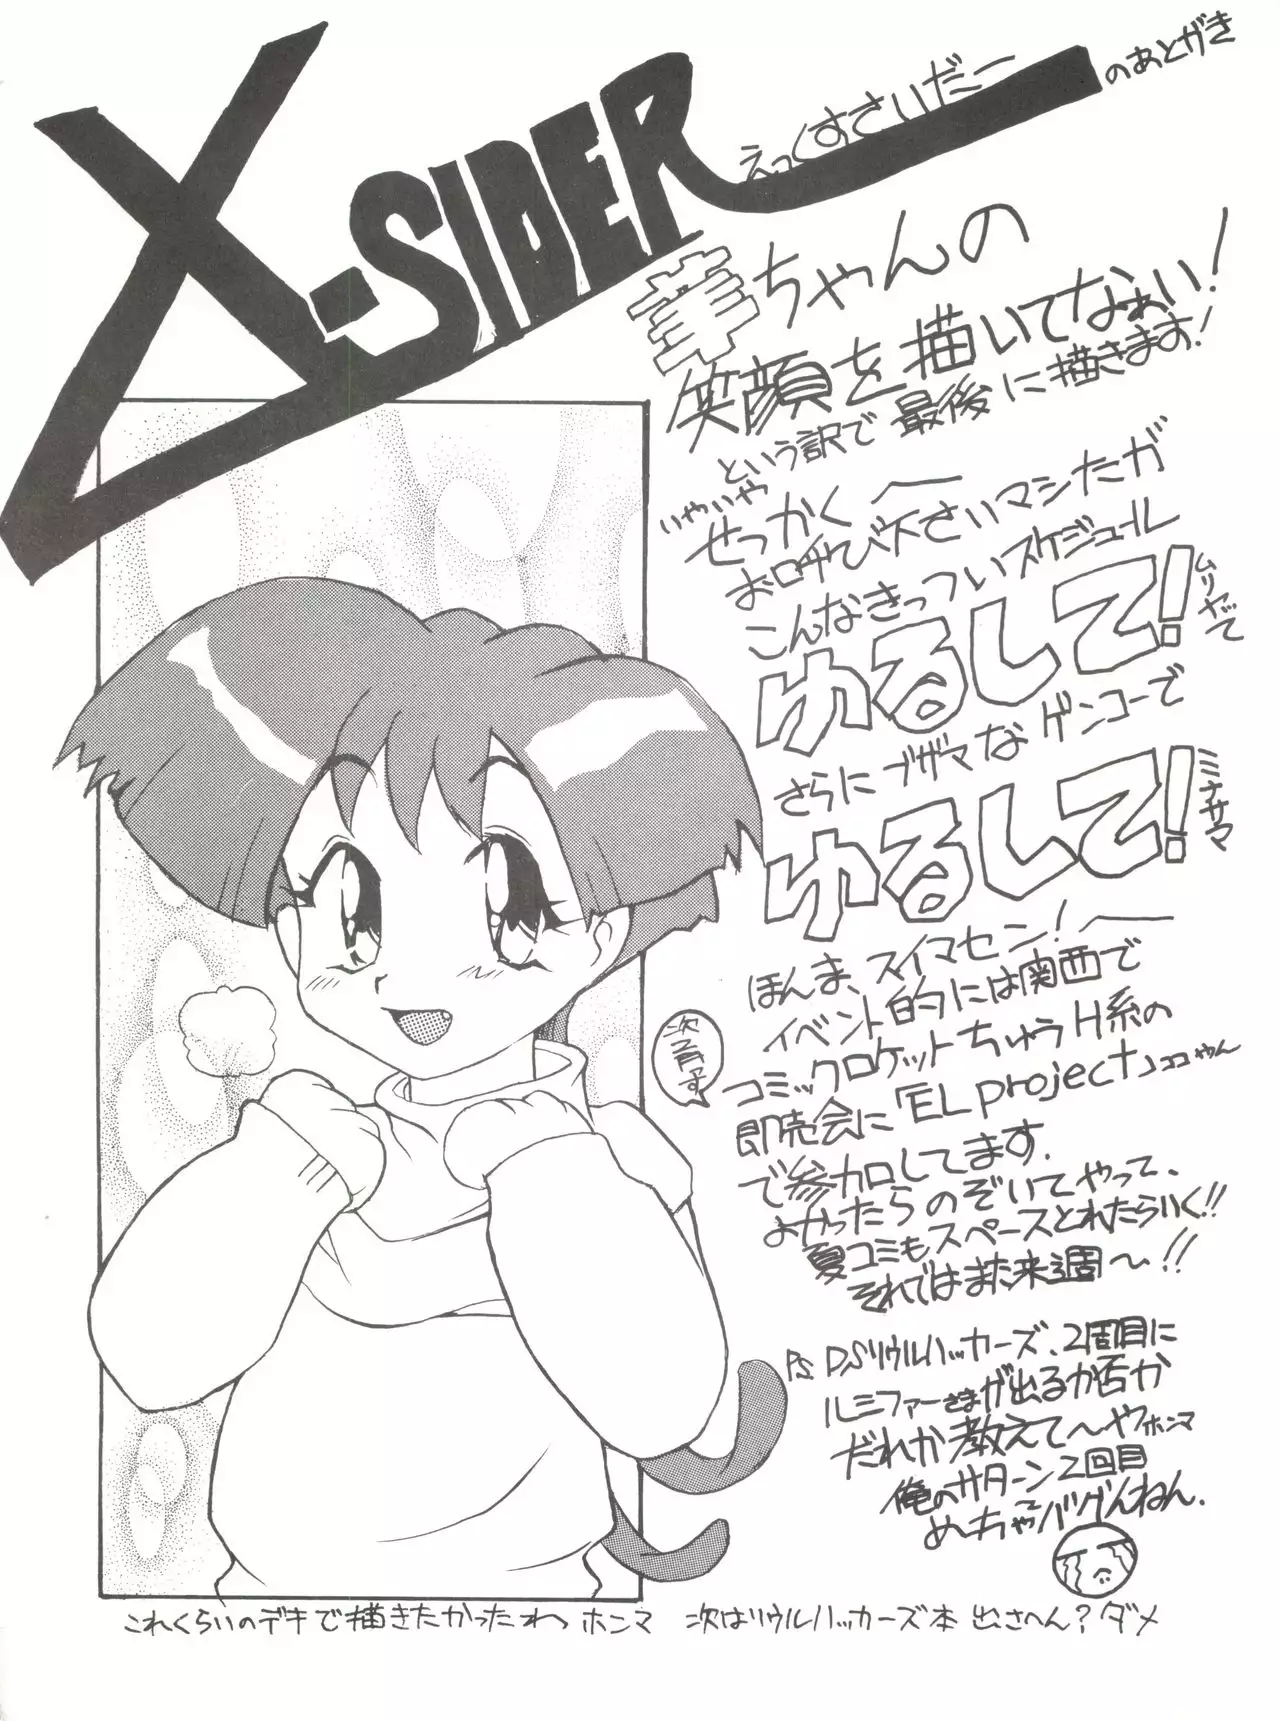 X-SIDER
えっくすさいだーのあとがき
華ちゃんの
笑顔を描いてなぁい!
という訳で最後に描きます!
いやいや
せっかく
お呼び下さいマシたが
こんなきっついスケジュール
ゆるして!
ムリヤて
さらにブザマなゲンコーで
ゆるして!
ミナサマ
ほんま、スイマセン!
イベント的には関西で
コミックロケットちゅうH系の
即売会に「EL project」ココやん
で参加してます.
よかったらのぞいてやって、
夏コミもスペースとれたらいく!!
それではまた来週〜!!
次号っす
PS DSソウルハッカーズ、2周目に
ルミファーさまが出るか否か
だれか教えて〜やホンマ
俺のサターン2回目
めっちゃバグんねん.
これくらいのデキで描きたかったわっホンマ 次はソウルハッカーズ本 出さへん?ダメ